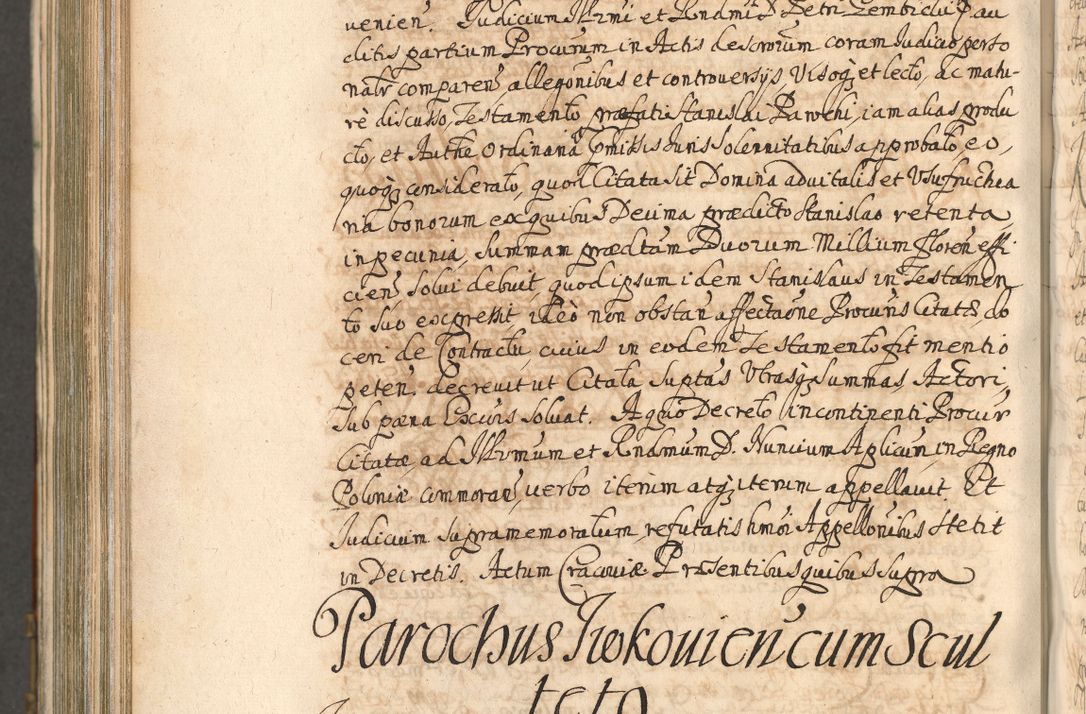 venien. Iudicium Illrmi et Rndmi D. Petri Gembicki P. au
ditis partium Procurum in Actis descrorum coram Iudicio perso
nalr comparen allegonibus et controversijs, Visoq, et lecto, ac matu-
rè discusso, Testamento præfati Stanislai Parochi, iam alias produ
cto, et Authe Ordinana pmissis Iuris solennitatibus approbato, eo,
quoq considerato, quod Citata sit Domina advitalis et Vsufructua
ria bonorum ex quibus Decima prædicto Stanislao retenta
in pecunia, Summam prædtam Duorum Millium floren effi
cien, Solui debuit, quod ipsum idem Stanislaus in Testamen
to suo expressit, ideò non obstan affectaone Procuris Citatæ, do
ceri de Contractu, cuius in eodem Testamento fit mentio
peten, decrevit ut Citata suptas Vtrasq Summas, Actori,
sub pæna Excoïs solvat. A quo Decreto incontinenti Procur
Citatæ, ad Illrmum et Rndmum D. Nuncium Aplicum in Regno
Poloniæ commoran, verbo iterum atq iterum appellavit, Et
Iudicium supramemoratum, refutatis hmoi Appellonibus stetit
in Decretis. Actum Cracoviæ Præsentibus quibus supra
Parochus Iwkovien cum Scul
teto